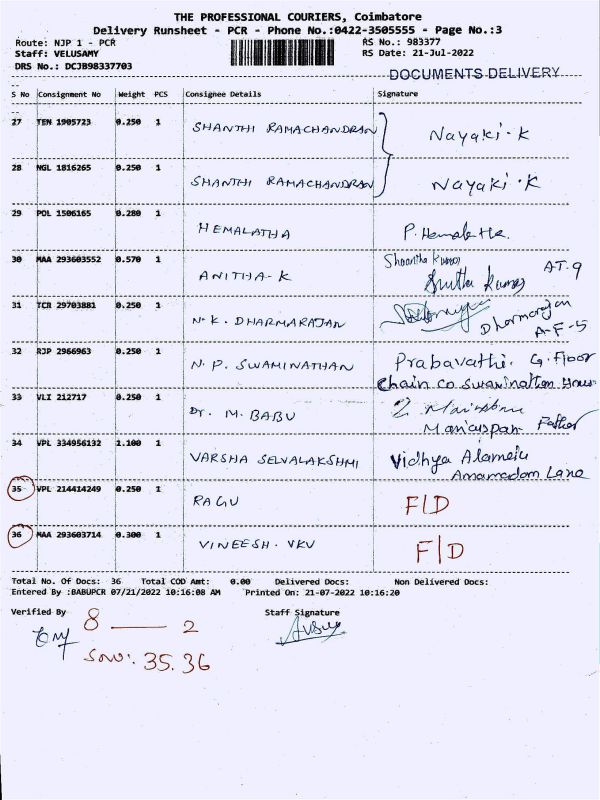 THE PROFESSIONAL COURIERS, Coimbatore
Delivery Runsheet - PCR - Phone No.:0422-3505555 - Page No.:3
Route: NJP 1 - PCR RS No.: 983377
Staff: VELUSAMY RS Date: 21-Jul-2022
DRS No.: DCJB98337703
DOCUMENTS DELIVERY
S No Consignment No Weight PCS Consignee Details Signature
27 TEN 1905723 0.250 1 SHANTHI RAMACHANDRAN Nayaki.K
28 NGL 1816265 0.250 1 SHANTHI RAMACHANDRAN Nayaki.K
29 POL 1506165 0.280 1 HEMALATHA P. Hemalatha.
30 MAA 293603552 0.570 1 ANITHA-K Kumar AT-9
Kumar
31 TCR 29703881 0.250 1 N.K. DHARMARAJAN Dharmarajan
A-F-5
32 RJP 2966963 0.250 1 N.P. SWAMINATHAN Prabavathi. G.Floor
Chain co Swaminathan House
33 VLI 212717 0.250 1 Dr. M. BABU
Father
34 VPL 334956132 1.100 1 VARSHA SELVALAKSHMI Vidhya Alamelu
Lane
35 VPL 214414249 0.250 1 RAGU F/D
36 MAA 293603714 0.300 1 VINEESH.VKV F/D
Total No. Of Docs: 36 Total COD Amt: 0.00 Delivered Docs: Non Delivered Docs:
Entered By :BABUPCR 07/21/2022 10:16:08 AM Printed On: 21-07-2022 10:16:20
Verified By Staff Signature
8 — 2
S.no: 35.36